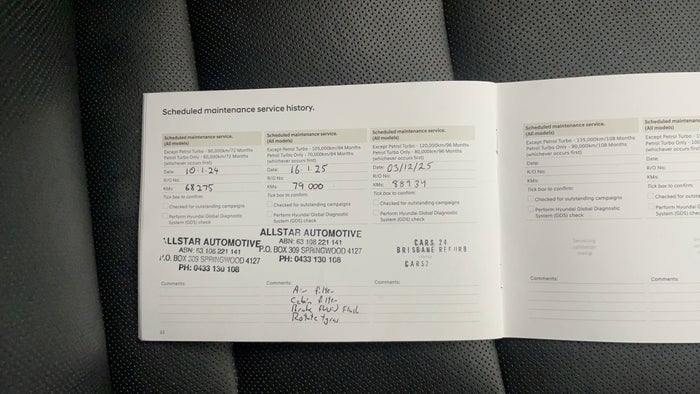 Scheduled maintenance service history.
Scheduled maintenance service.
(All models)
Except Petrol Turbo - 90,000km/72 Months
Petrol Turbo Only - 60,000km/72 Months
(whichever occurs first)
Date: 10.1.24
R/O No:
KMs: 68275
Tick box to confirm:
Checked for outstanding campaigns
Perform Hyundai Global Diagnostic
System (GDS) check
ALLSTAR AUTOMOTIVE
ABN: 63 108 221 141
P.O. BOX 309 SPRINGWOOD 4127
PH: 0433 130 108
Comments:
22
Scheduled maintenance service.
(All models)
Except Petrol Turbo - 105,000km/84 Months
Petrol Turbo Only - 70,000km/84 Months
(whichever occurs first)
Date: 16.1.25
R/O No:
KMs: 79 000
Tick box to confirm:
Checked for outstanding campaigns
Perform Hyundai Global Diagnostic
System (GDS) check
ALLSTAR AUTOMOTIVE
ABN: 63 108 221 141
P.O. BOX 309 SPRINGWOOD 4127
PH: 0433 130 108
Comments:
Air filter
Cabin filter
Brake fluid Flush
Rotate tyres
Scheduled maintenance service.
(All models)
Except Petrol Turbo - 120,000km/96 Months
Petrol Turbo Only - 80,000km/96 Months
(whichever occurs first)
Date: 03/12/25
R/O No:
KMs: 88934
Tick box to confirm:
Checked for outstanding campaigns
Perform Hyundai Global Diagnostic
System (GDS) check
CARS 24
BRISBANE REFURB
CARS2
Comments:
Scheduled maintenance service.
(All models)
Except Petrol Turbo - 135,000km/108 Months
Petrol Turbo Only - 90,000km/108 Months
(whichever occurs first)
Date:
R/O No:
KMs:
Tick box to confirm:
Checked for outstanding campaigns
Perform Hyundai Global Diagnostic
System (GDS) check
Comments:
Scheduled
(All models)
Except Petrol Turbo
Petrol Turbo Only
(whichever occurs
Date:
R/O No:
KMs:
Tick box to confirm
Checked for
Perform Hyundai
System (GDS)
Comments: